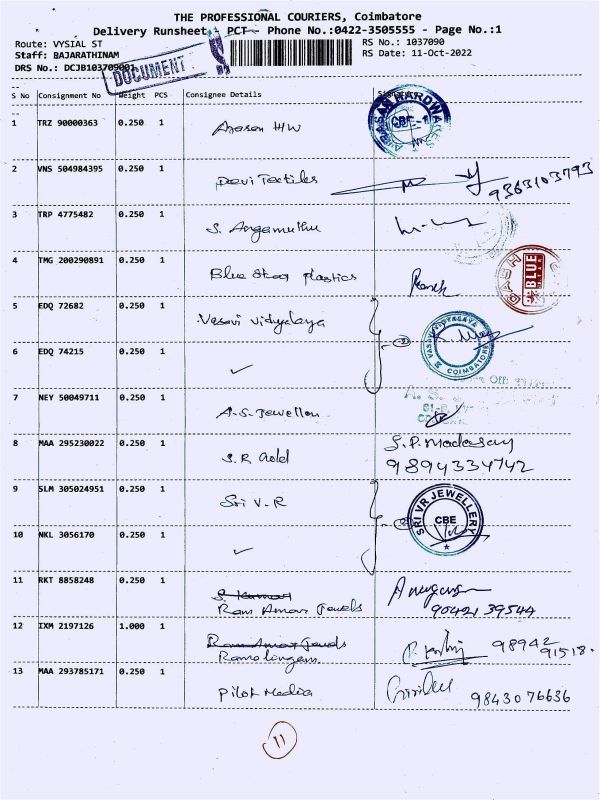 THE PROFESSIONAL COURIERS, Coimbatore
Delivery Runsheet - PCT - Phone No.:0422-3505555 - Page No.:1
Route: VYSIAL ST RS No.: 1037090
Staff: BAJARATHINAM RS Date: 11-Oct-2022
DRS No.: DCJB103709001
DOCUMENT
S No Consignment No Weight PCS Consignee Details
1 TRZ 90000363 0.250 1 Arasan H/W
CBE-1
2 VNS 504984395 0.250 1 Devi Textiles 9363103793
3 TRP 4775482 0.250 1 S. Angamuthu
4 TMG 200290891 0.250 1 Blue Star Plastics
BLUE
5 EDQ 72682 0.250 1 Vasavi Vidyalaya
VASAVI VIDYALAYA COIMBATORE
6 EDQ 74215 0.250 1 ✓
7 NEY 50049711 0.250 1 A.S. Jewellers
8 MAA 295230022 0.250 1 S.R Gold S.P. Madasamy
9894334742
9 SLM 305024951 0.250 1 Sri V.R
SRI VR JEWELLERY CBE
10 NKL 3056170 0.250 1 ✓
11 RKT 8858248 0.250 1 S. Kumar
Ram Amar Jewels 9042139544
12 IXM 2197126 1.000 1 Ram Amar Jewels 98942
Ramalingam 91518.
13 MAA 293785171 0.250 1 Pilot Media 9843076636
11